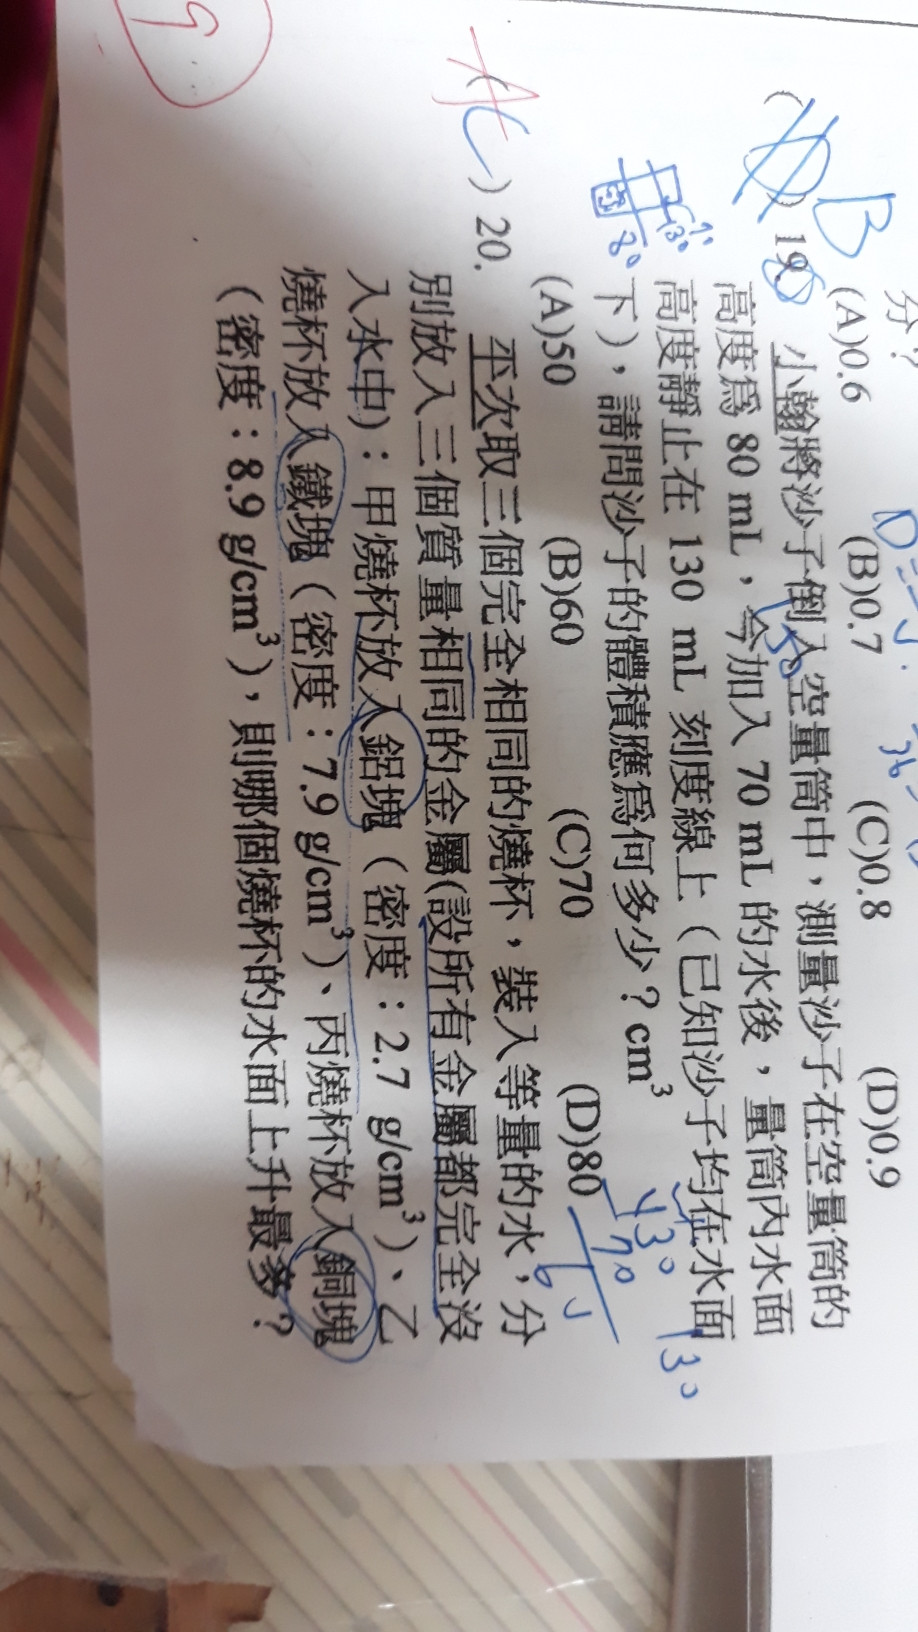 分？
(A)0.6 (B)0.7 (C)0.8 (D)0.9
B
( ) 19. 小翰將沙子倒入空量筒中，測量沙子在空量筒的
高度為 80 mL，今加入 70 mL 的水後，量筒內水面
高度靜止在 130 mL 刻度線上（已知沙子均在水面
下），請問沙子的體積應為何多少？cm³
(A)50 (B)60 (C)70 (D)80
80
130
130
70
( ) 20. 平次取三個完全相同的燒杯，裝入等量的水，分
別放入三個質量相同的金屬(設所有金屬都完全沒
入水中)：甲燒杯放入鋁塊（密度：2.7 g/cm³）、乙
燒杯放入鐵塊（密度：7.9 g/cm³）、丙燒杯放入銅塊
（密度：8.9 g/cm³），則哪個燒杯的水面上升最多？